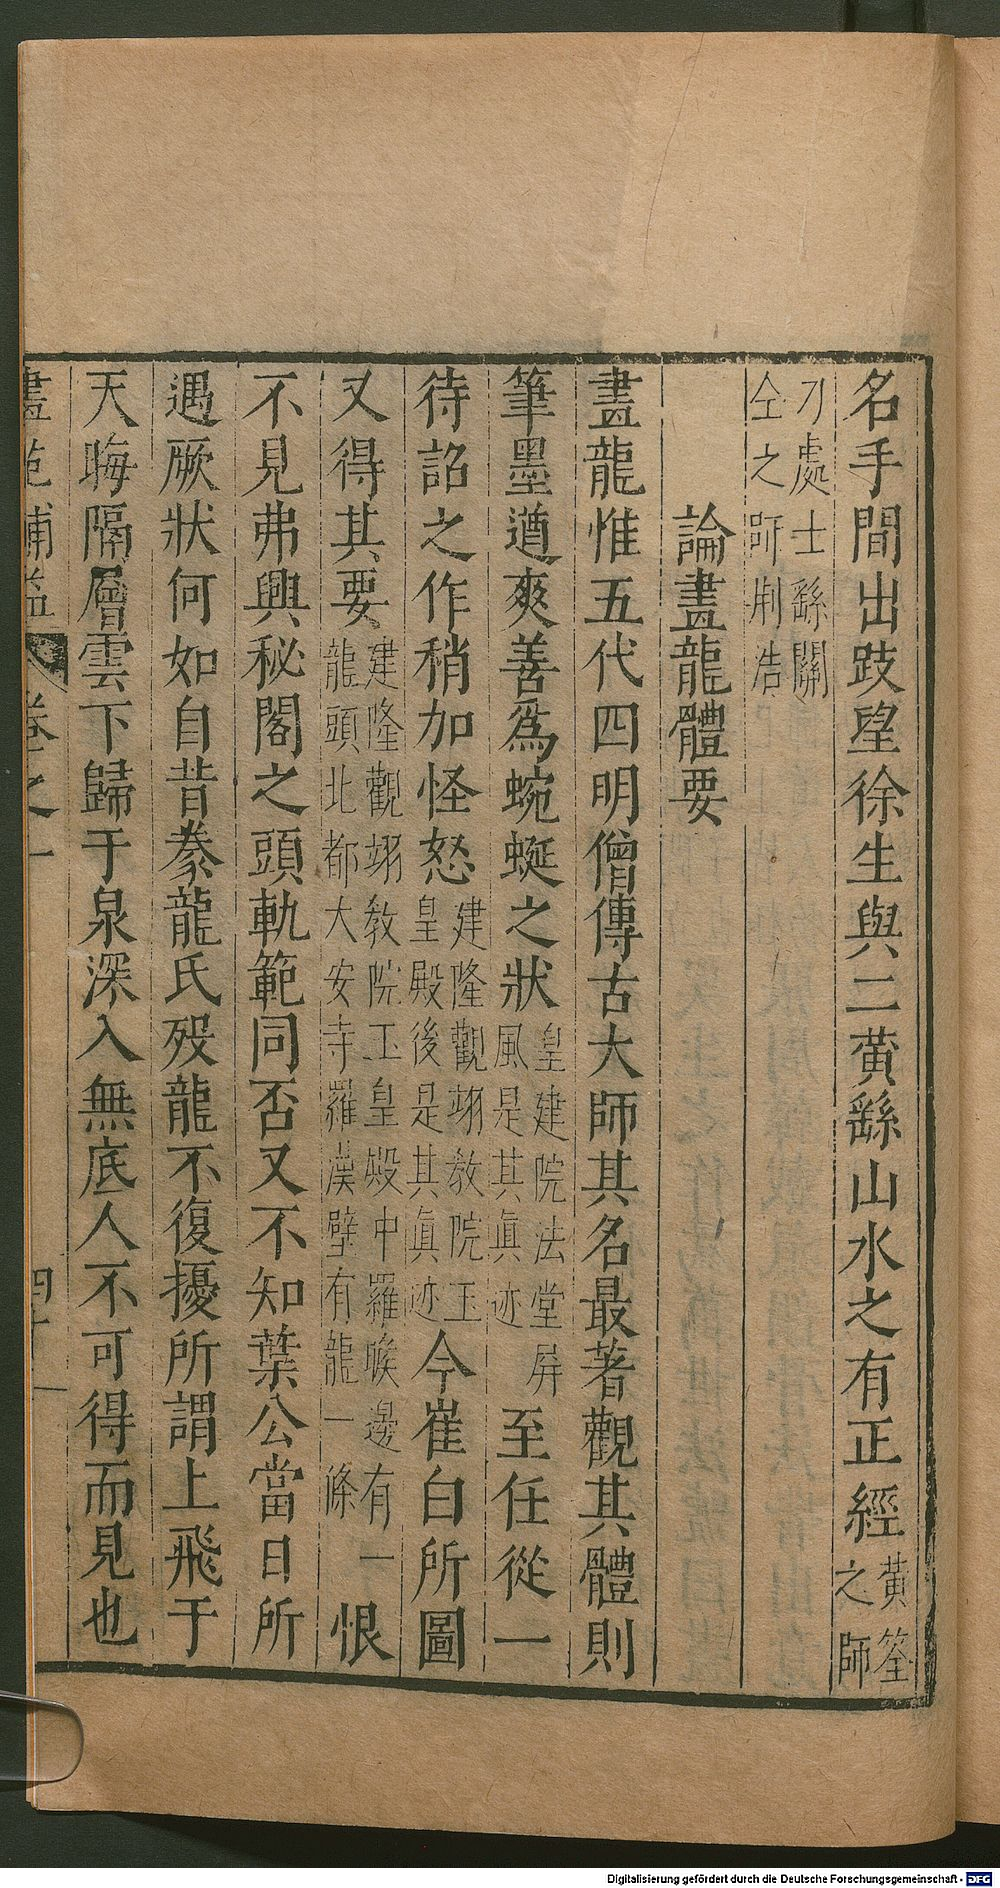 名手間出跂望徐生與二黃繇山水之有正經黃筌之師
刀處士繇關仝之師荆浩
論畫龍體要
畫龍惟五代四明僧傳古大師其名最著觀其體則
筆墨遒爽善爲蜿蜒之狀皇建院法堂屏風是其眞迹至任從一
待詔之作稍加怪怒建隆觀翊教院玉皇殿後是其眞迹今崔白所圖
又得其要建隆觀翊教院玉皇殿中羅睺邊有一龍頭北都大安寺羅漢壁有龍一條恨
不見弗興秘閣之頭軌範同否又不知葉公當日所
遇厥狀何如自昔豢龍氏歿龍不復擾所謂上飛于
天晦隔層雲下歸于泉深入無底人不可得而見也
畫苑補益 卷之一
Digitalisierung gefördert durch die Deutsche Forschungsgemeinschaft - DFG